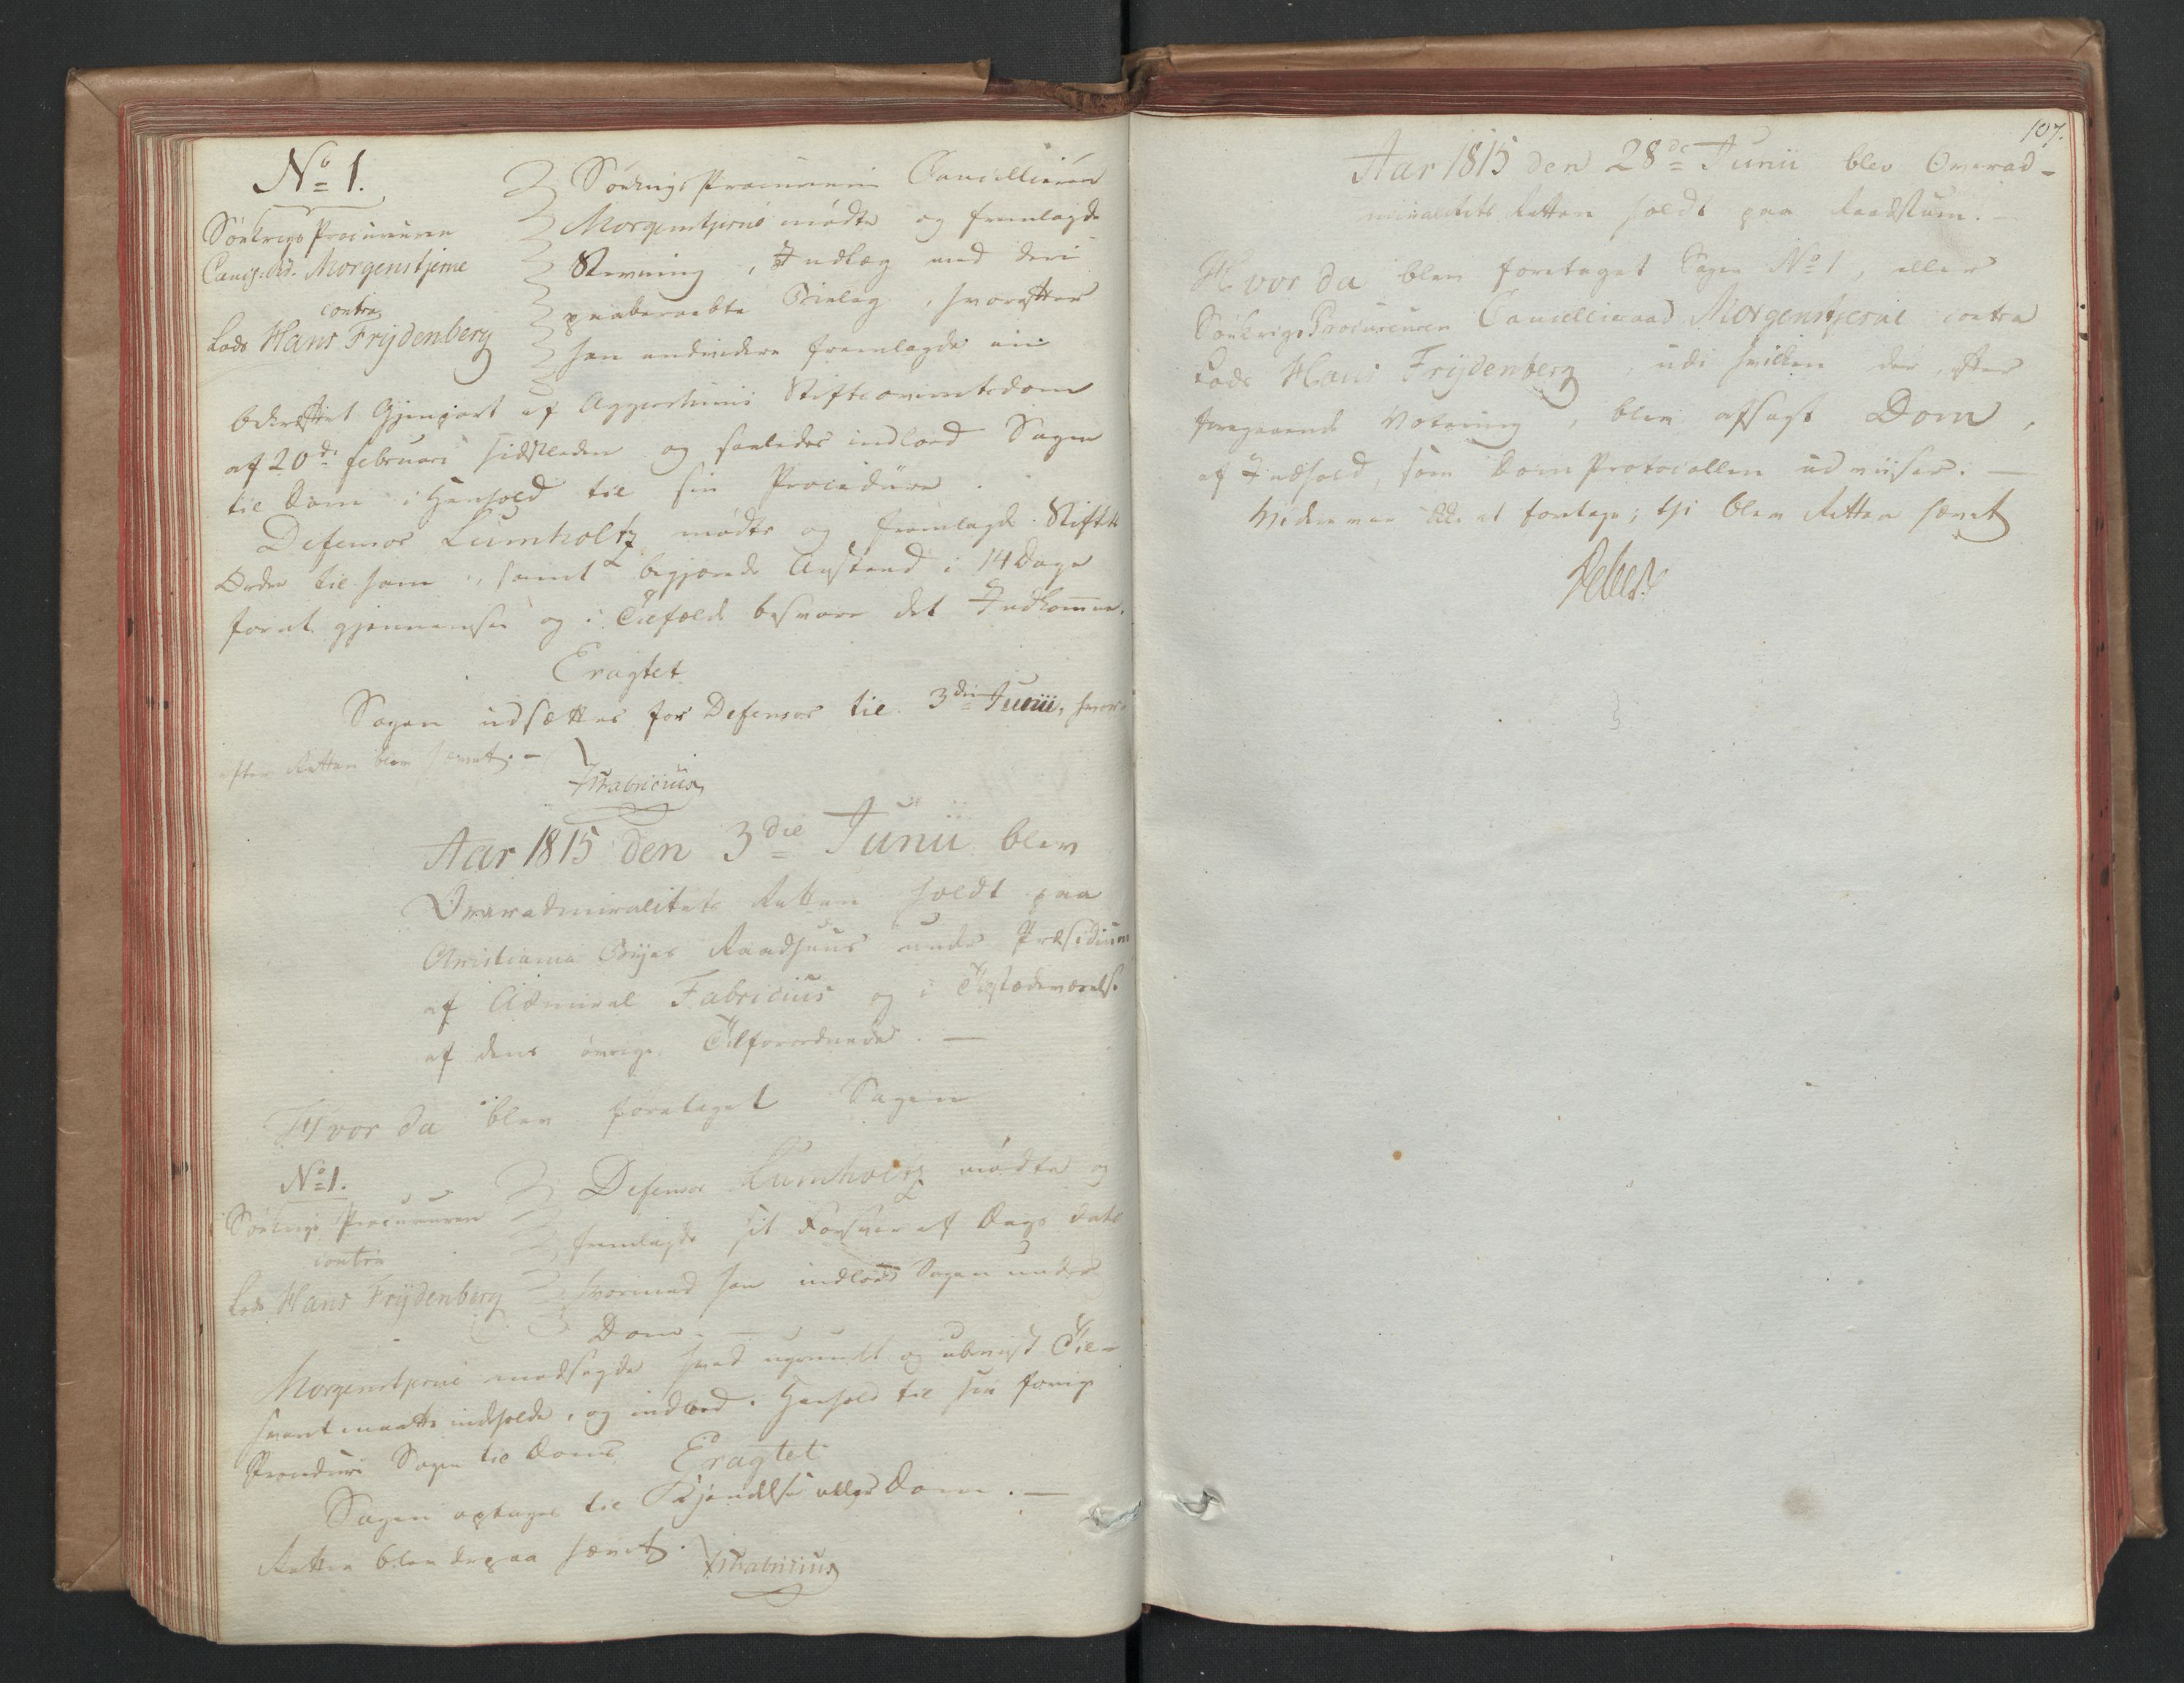 No 1.
Söekrigs Procureuren
Cancs:rd. Morgenstjerne
contra
Lods Hans Frydenberg
Söekrigs Procureuren Cancelliraad
Morgenstjerne mødte og fremlagde
Stevning, Indlæg med deri
paaberaabte Bielag, hvorefter
han endvidere fremlagde en
bekræftet Gjenpart af Aggershuus Stiftsoverretsdom
af 20de februari sidstleden og saaledes indlod Sagen
til Dom i Henhold til sin Procedure.
Defensor Lumholtz mødte og fremlagde Stiftets
Ordre til ham, samt begjærede Anstand i 14 Dage
forat gjennemsee og i Tilfælde besvare det Indkomne.
Eragtet
Sagen udsættes for Defensor til 3die Junii, hvor-
efter Retten blev hævet. –
Fabricius
Aar 1815 den 3die Junii blev
Overadmiralitets Retten holdt paa
Christiania Byes Raadhuus under Præsidium
af Admiral Fabricius og i Tilstædeværelse
af dens øvrige Tilforordnede. —
Hvor da blev foretaget Sagen
No 1.
Söekrigs Procureuren
contra
Lods Hans Frydenberg
Defensor Lumholtz mødte og
fremlagde sit Forsvar af Dags Dato
hvormed han indlod Sagen under
Dom. —
Morgenstjerne modsagde hvad ugrundet og ubeviist Til-
svaret maatte indeholde, og indlod i Henhold til sin forrige
Procedure Sagen til Doms. Eragtet
Sagen optages til Kjendelse eller Dom. —
Retten blev derpaa hævet.
Fabricius
107.
Aar 1815 den 28de Junii blev Overad-
miralitets Retten holdt paa Raadstuen. —
Hvor da blev foretaget Sagen No 1, eller
Söekrigs Procureuren Cancelliraad Morgenstjerne contra
Lods Hans Frydenberg, udi hvilken der, efter
foregaaende Votering, blev afsagt Dom,
af Indhold, som Dom Protocollen udviiser. —
Videre var ikke at foretage; thi blev Retten hævet